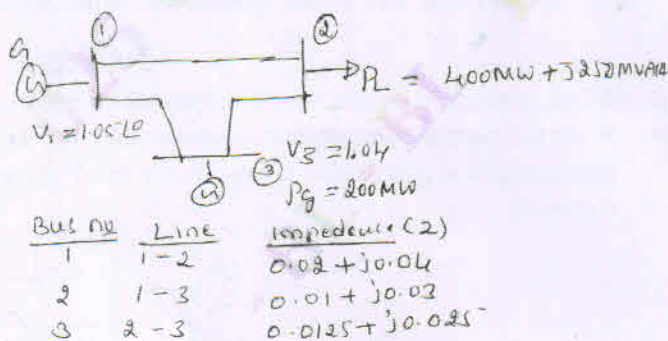 ① ②
G
G PL = 400MW + j250MVAR
V1 = 1.05∠0
③ V3 = 1.04
G Pg = 200MW
Bus no Line Impedence (Z)
1 1-2 0.02 + j0.04
2 1-3 0.01 + j0.03
3 2-3 0.0125 + j0.025